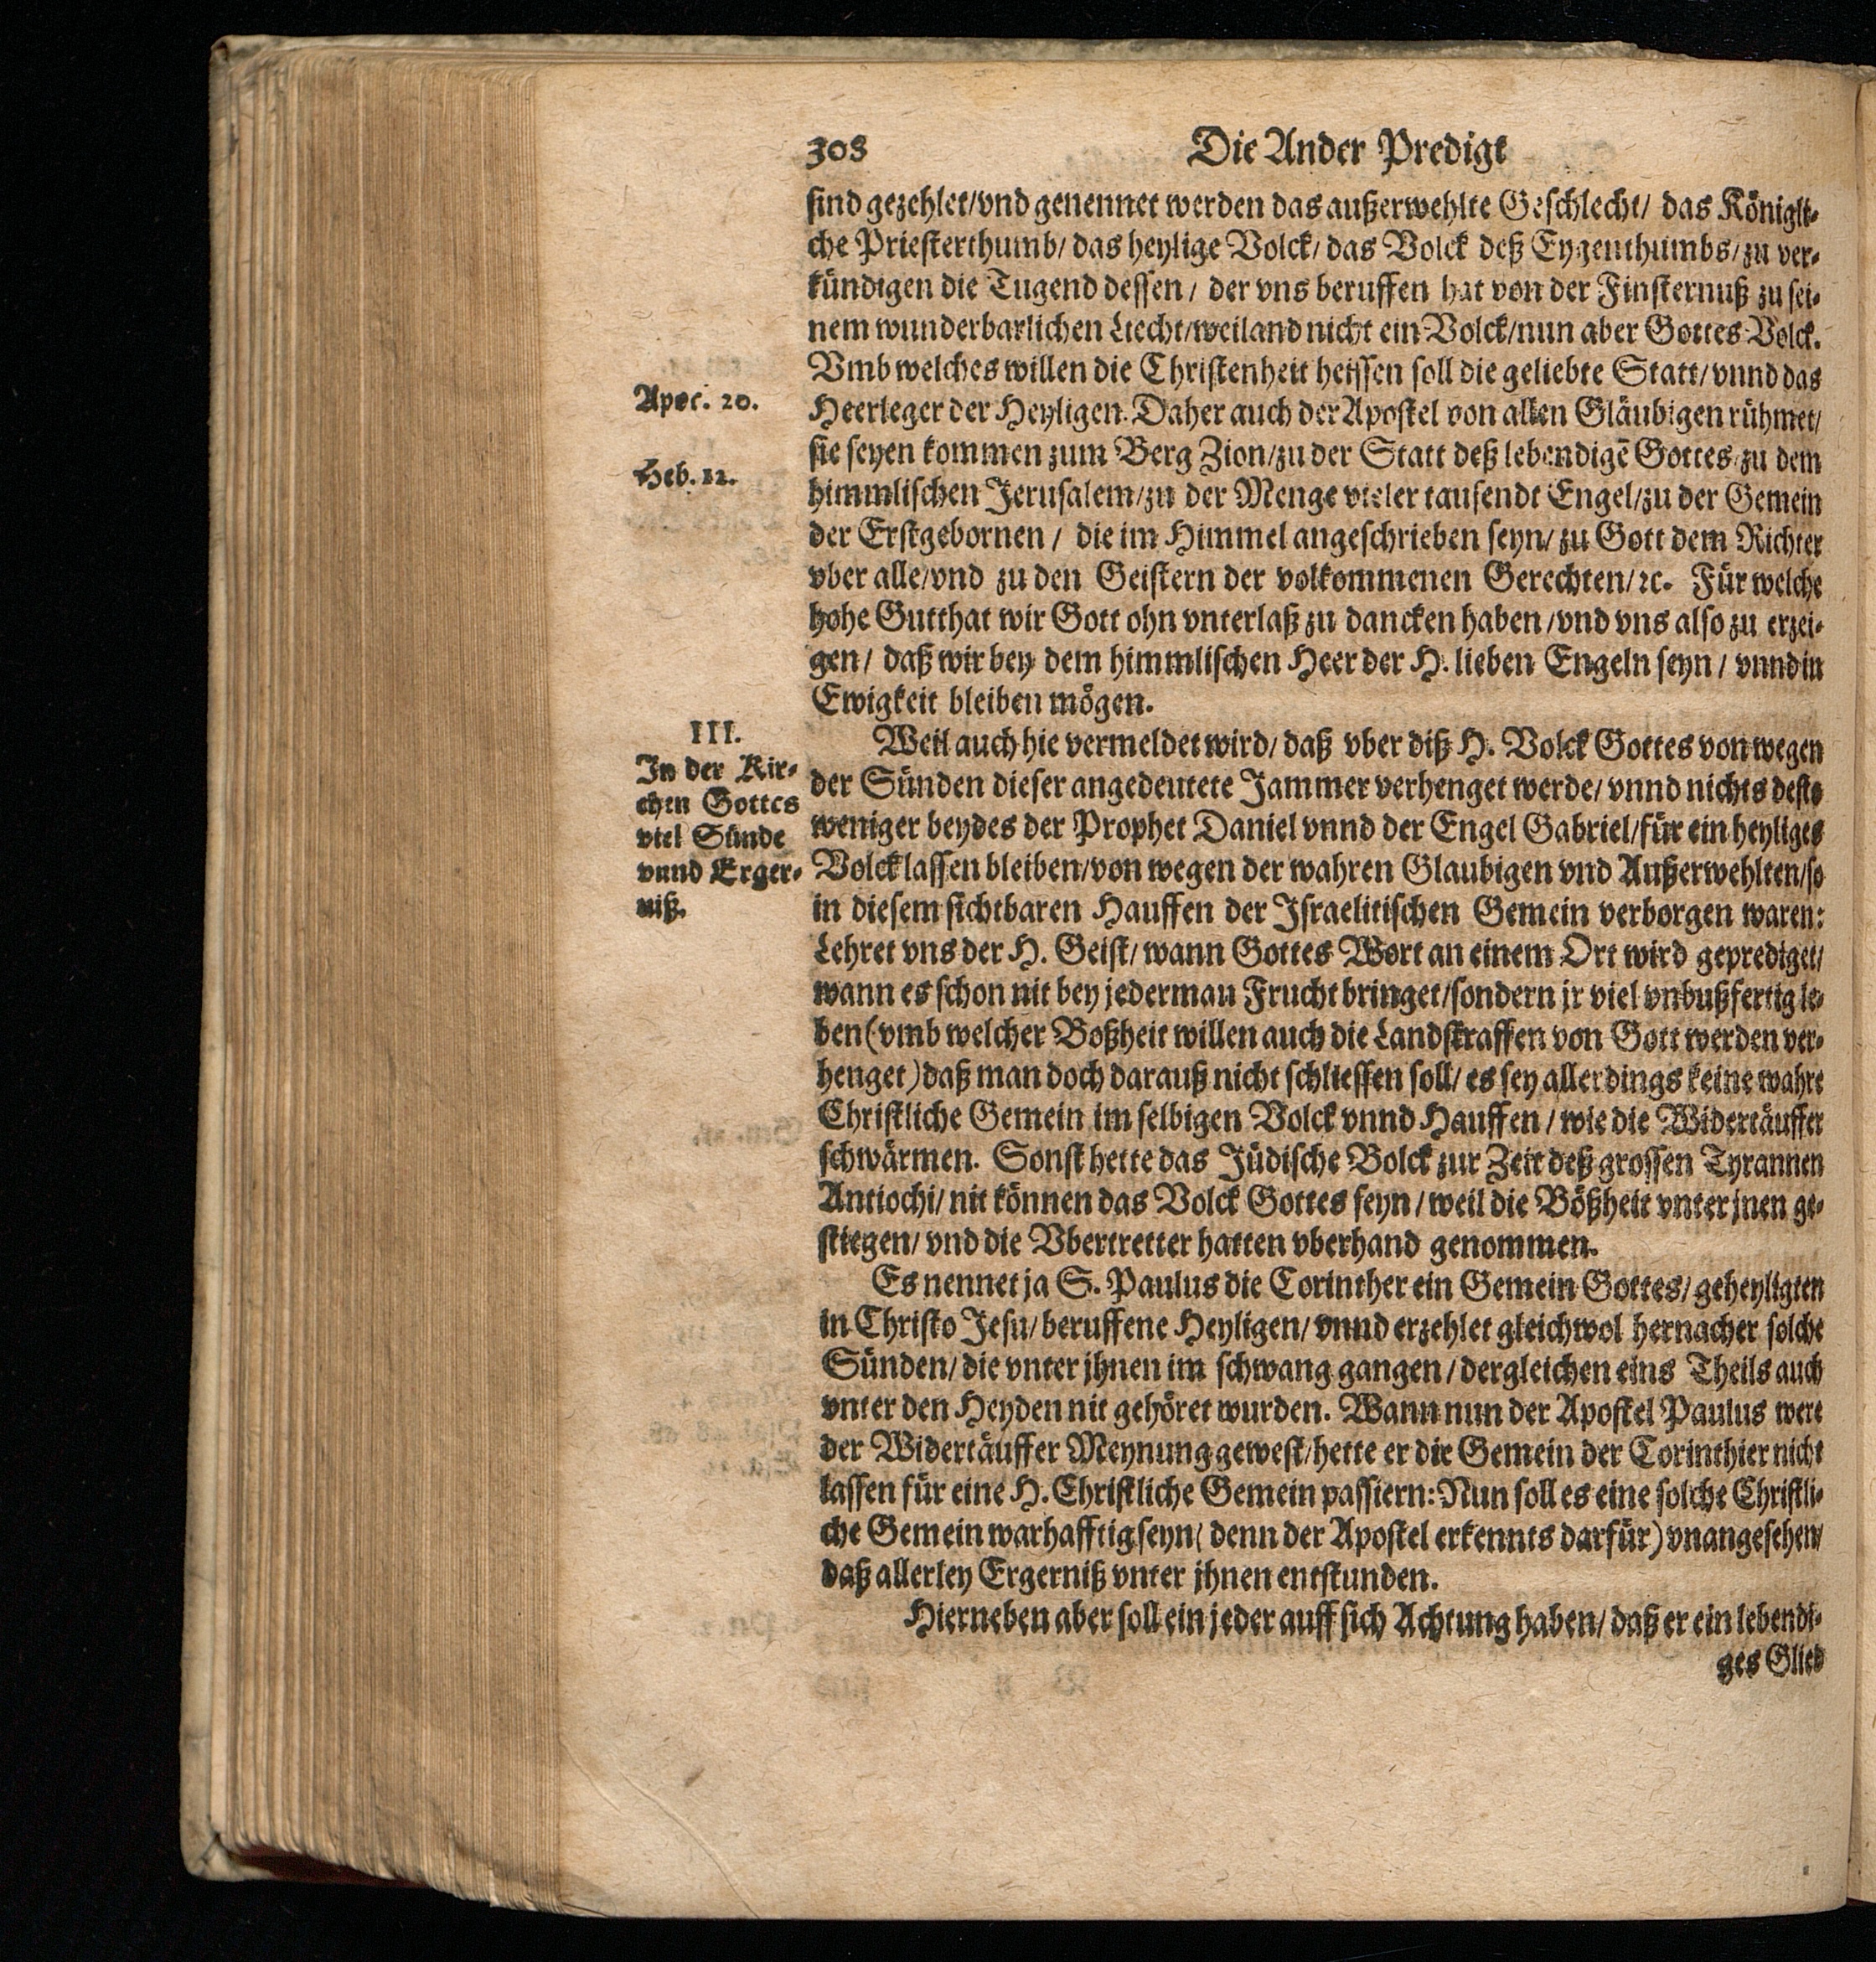 308 Die Ander Predigt
sind gezehlet/vnd genennet werden das außerwehlte Geschlecht/ das Königli-
che Priesterthumb/ das heylige Volck/ das Volck deß Eygenthumbs/ zu ver-
kündigen die Tugend dessen/ der vns beruffen hat von der Finsternuß zu sei-
nem wunderbarlichen Liecht/weiland nicht ein Volck/nun aber Gottes Volck.
Vmb welches willen die Christenheit heissen soll die geliebte Statt/ vnnd das
Apoc. 20.
Heerleger der Heyligen. Daher auch der Apostel von allen Gläubigen rühmet/
sie seyen kommen zum Berg Zion/zu der Statt deß lebendigē Gottes/zu dem
Heb. 12.
himmlischen Jerusalem/zu der Menge vieler tausendt Engel/zu der Gemein
der Erstgebornen/ die im Himmel angeschrieben seyn/ zu Gott dem Richter
vber alle/vnd zu den Geistern der volkommenen Gerechten/ꝛc. Für welche
hohe Gutthat wir Gott ohn vnterlaß zu dancken haben/vnd vns also zu erzei-
gen/ daß wir bey dem himmlischen Heer der H. lieben Engeln seyn/ vnnd in
Ewigkeit bleiben mögen.
III.
In der Kir-
chen Gottes
viel Sünde
vnnd Erger-
niß.
Weil auch hie vermeldet wird/ daß vber diß H. Volck Gottes von wegen
der Sünden dieser angedeutete Jammer verhenget werde/ vnnd nichts desto
weniger beydes der Prophet Daniel vnnd der Engel Gabriel/für ein heyliges
Volck lassen bleiben/von wegen der wahren Glaubigen vnd Außerwehlten/so
in diesem sichtbaren Hauffen der Israelitischen Gemein verborgen waren:
Lehret vns der H. Geist/ wann Gottes Wort an einem Ort wird geprediget/
wann es schon nit bey jederman Frucht bringet/sondern jr viel vnbußfertig le-
ben (vmb welcher Boßheit willen auch die Landstraffen von Gott werden ver-
henget) daß man doch darauß nicht schliessen soll/ es sey allerdings keine wahre
Christliche Gemein im selbigen Volck vnnd Hauffen/ wie die Widertäuffer
schwärmen. Sonst hette das Jüdische Volck zur Zeit deß grossen Tyrannen
Antiochi/ nit können das Volck Gottes seyn/ weil die Bößheit vnter jnen ge-
stiegen/ vnd die Vbertretter hatten vberhand genommen.
Es nennet ja S. Paulus die Corinther ein Gemein Gottes/ geheyligten
in Christo Jesu/ beruffene Heyligen/ vnnd erzehlet gleichwol hernacher solche
Sünden/ die vnter jhnen im schwang gangen/ dergleichen eins Theils auch
vnter den Heyden nit gehöret wurden. Wann nun der Apostel Paulus were
der Widertäuffer Meynung gewest/hette er die Gemein der Corinthier nicht
lassen für eine H. Christliche Gemein passiern: Nun soll es eine solche Christli-
che Gemein warhafftig seyn( denn der Apostel erkennts darfür) vnangesehen/
daß allerley Ergerniß vnter jhnen entstunden.
Hierneben aber soll ein jeder auff sich Achtung haben/ daß er ein lebendi-
ges Glied